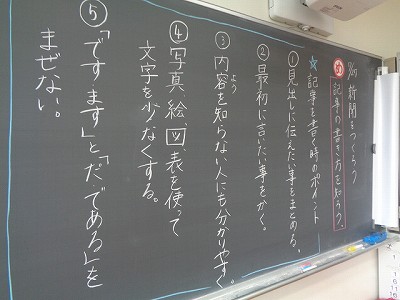 新聞をつくろう
記事の書き方を知ろう。
☆記事を書く時のポイント
①見出しに伝えたい事をまとめる。
②最初に言いたい事をかく。
③内容を知らない人にも分かりやすく。
よう
④写真、絵、図、表を使って
文字を少なくする。
⑤「ですます」と「だ、である」を
まぜない。